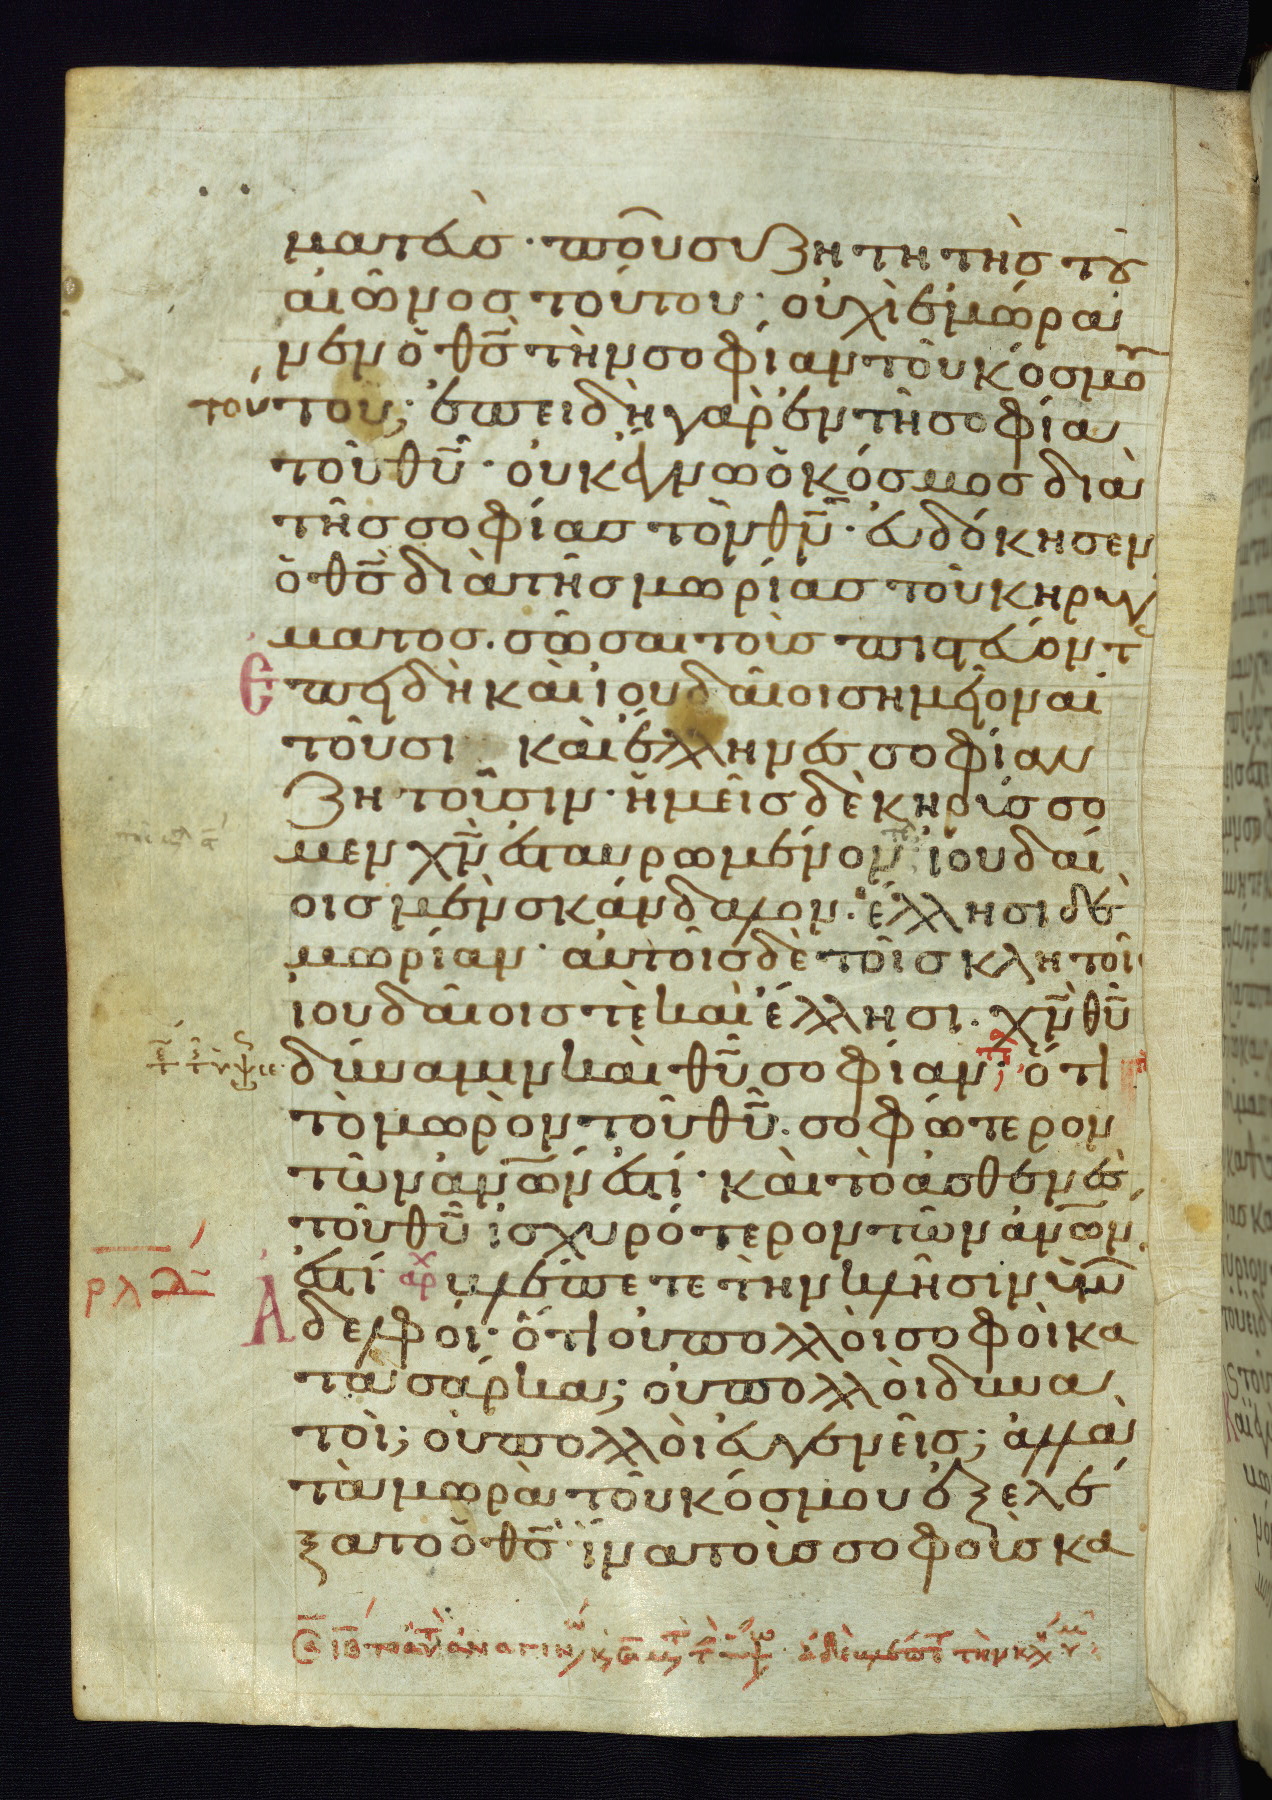 ματεύς· ποῦ συζητητὴς τοῦ
αἰῶνος τούτου· οὐχὶ ἐμώρα
νεν ὁ θς τὴν σοφίαν τοῦ κόσμου
τούτου; ἐπειδὴ γὰρ ἐν τῆ σοφία
τοῦ θυ· οὐκ ἔγνω ὁ κόσμος διὰ
τῆς σοφίας τὸν θν· εὐδόκησεν
ὁ θς διὰ τῆς μωρίας τοῦ κηρύγ
ματος. σῶσαι τοὺς πιστεύοντ
Ἐπειδὴ καὶ ἰουδαῖοι σημεῖον αἰ
τοῦσι καὶ ἕλληνες σοφίαν
ζητοῦσιν· ἡμεῖς δὲ κηρύσσο
μεν χν ἐσταυρωμένον ἰουδαί
οις μὲν σκάνδαλον· ἕλλησι δὲ
μωρίαν· αὐτοῖς δὲ τοῖς κλητοῖ
ἰουδαίοις τὲ καὶ ἕλλησι. χν θυ
δύναμιν καὶ θυ σοφίαν; ὅτι
τὸ μωρὸν τοῦ θυ. σοφώτερον
τῶν ἀνων ἐστί· καὶ τὸ ἀσθενὲς
τοῦ θυ ἰσχυρότερον τῶν ἀνων
ἐστί· αρχ βλέπετε τὴν κλῆσιν ὑμῶ
Ἀδελφοί· ὅτι οὐ πολλοὶ σοφοὶ κα
τὰ σάρκα; οὐ πολλοὶ δυνα
τοὶ; οὐ πολλοὶ εὐγενεῖς; ἀλλὰ
τὰ μωρὰ τοῦ κόσμου ἐξελέ
ξατο ὁ θς· ἵνα τοὺς σοφοὺς κα